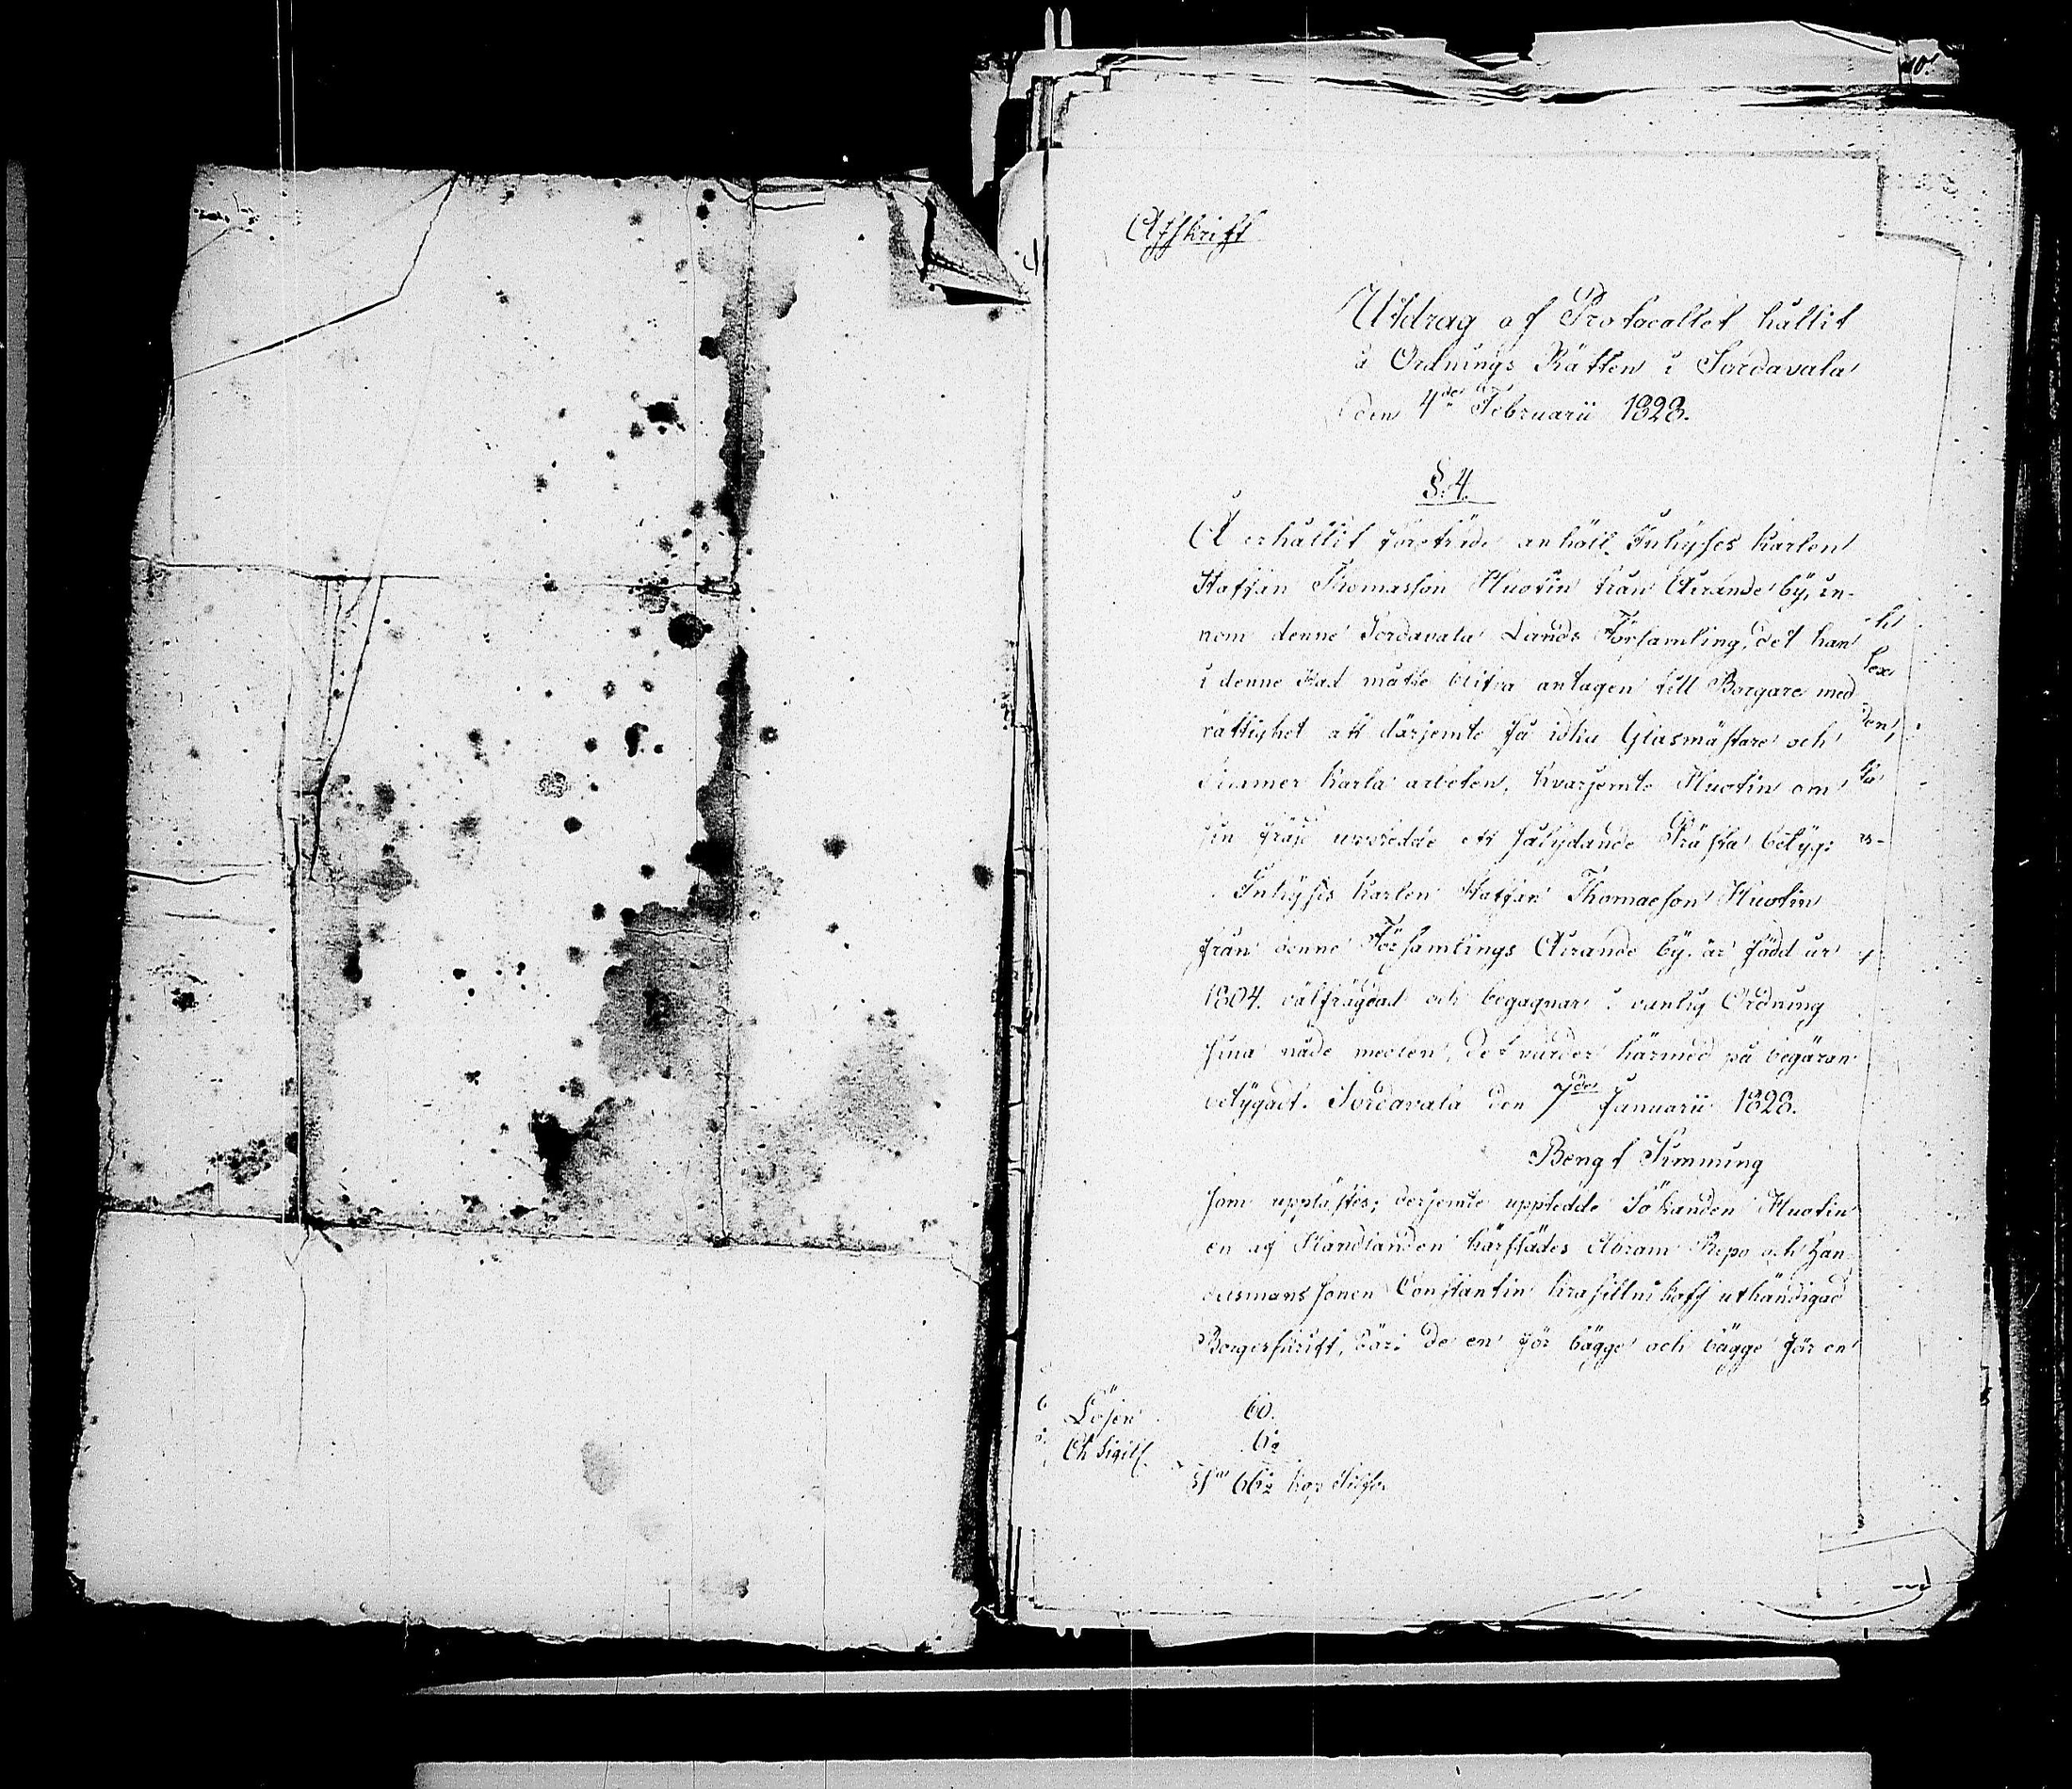 10.
Afskrift
Utdrag af Protocollet hållit
å Ordnings Rätten i Sordavala
den 4de Februarii 1828.
§. 4.
Å erhållit företräde anhöll Inhyses karlen
Staffan Thomasson Huotin från Airande by, in-
nom denne Sordavala Lands Församling, det han
i denne Stad måtte blifva antagen till Borgare med
rättighet att därjemte få idka Glasmästare och
timmer karla arbeten, hvarjemte Huotin om
sin fräjd uppredde ett sålydande Prästa betyg:
Inhyses karlen Staffan Thomasson Huotin
från denne Församlings Airande by, är född år
1804. välfrägdad och begagnar i vanlig Ordning
sina nåde medlen, det varder härmed på begäran
betygadt. Sordavala den 7de Januarii 1828.
Bengt Simming
som upplästes; derjemte uppredde Sökanden Huotin
en af Handlanden härstädes Abram Repo och Han-
delsmans sonen Constantin Krasilnikoff uthändigad
Borgerskrift, däri de en för bägge och bägge för en
Lösen 60.
Ch Sigill. 6½
Sma 66½ kop Silfr.